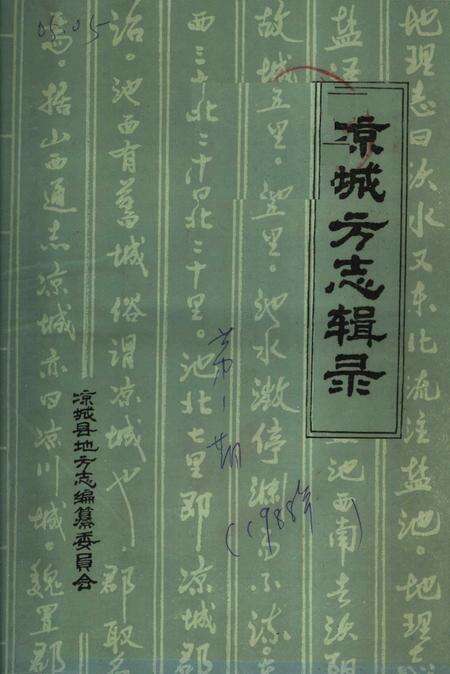 凉城方志辑录
第一期
(1988年)
凉城县地方志编纂委员会
05.05
地理志曰沃水又东北流注盐池。地理志
盐池西南去沃阳
故城五里。池水澂停渊而不流
西三十北二十里。池北七里即凉城郡
治。池西有旧城俗谓凉城也。郡取名
焉。据山西通志凉城亦曰凉川城。魏置郡